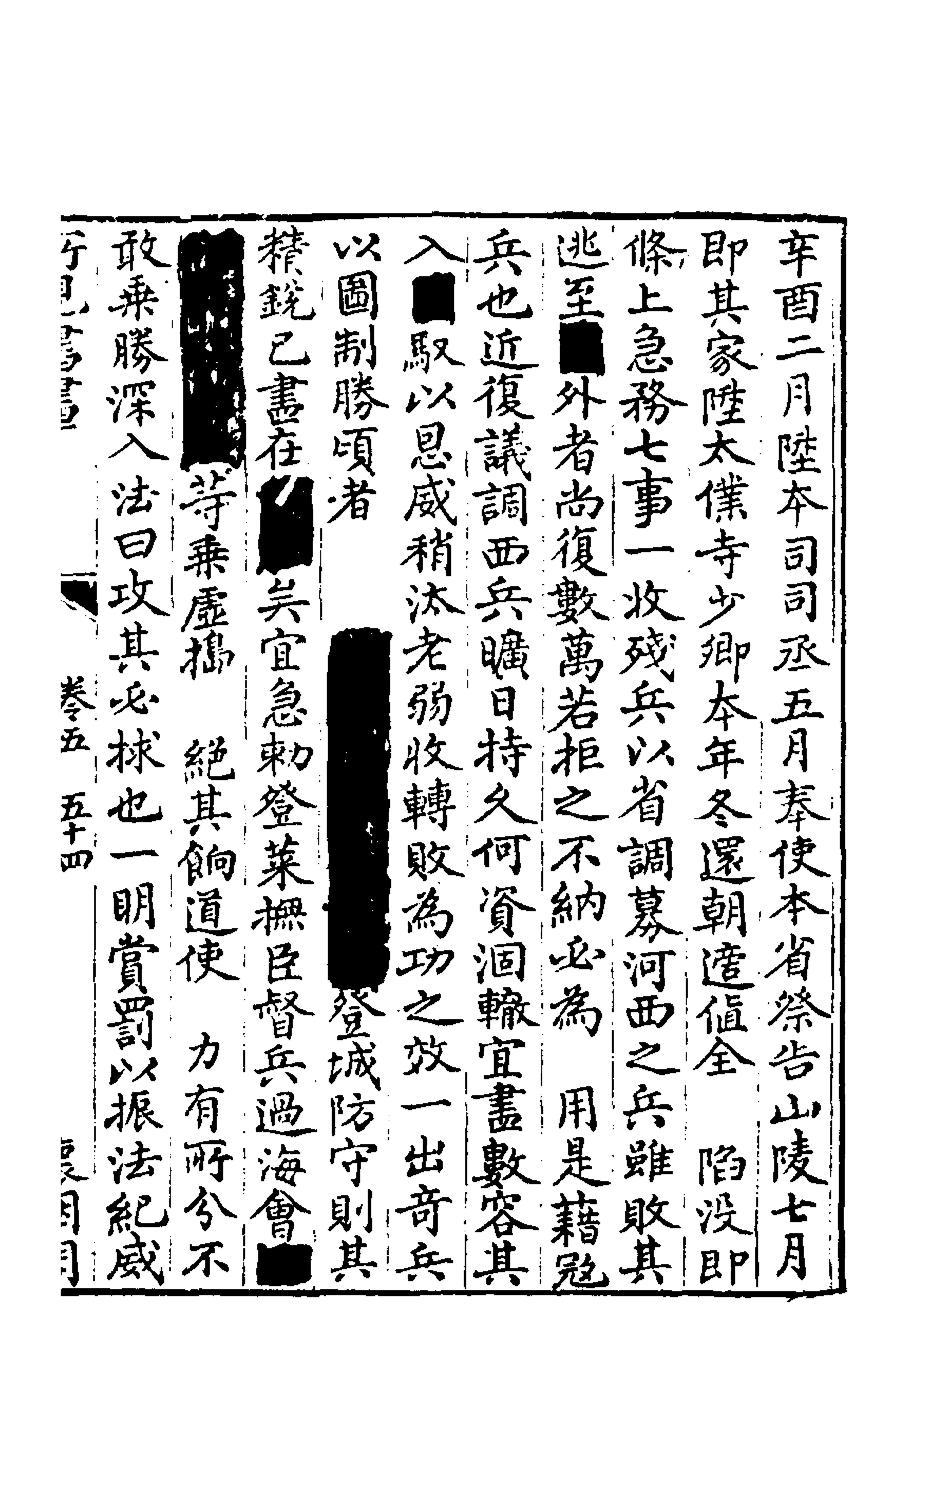 辛酉二月陞本司司丞五月奉使本省祭告山陵七月
即其家陞太僕寺少卿本年冬還朝適值全 陷没即
條上急務七事一收殘兵以省調募河西之兵雖敗其
逃至 外者尚復數萬若拒之不納必為 用是藉寇
兵也近復議調西兵曠日持久何資涸轍宜盡數容其
入 馭以恩威稍汰老弱收轉敗為功之效一出竒兵
以圖制勝頃者 登城防守則其
精銳已盡在 矣宜急勅登萊撫臣督兵過海會
等乗虛搗 絕其餉道使 力有所分不
敢乗勝深入法曰攻其必捄也一明賞罰以振法紀威
卷五 五十四